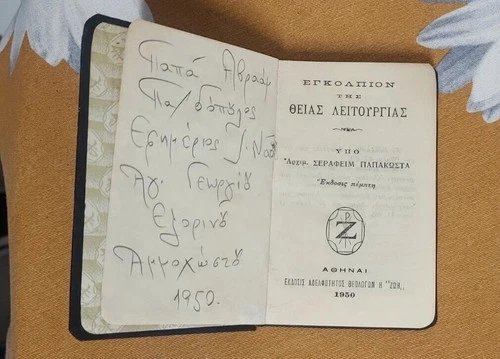 Παπά Αβραάμ
Πα/δοπ/λος
Εφημέριος Ι. Ναού
Αγ. Γεωργίου
Εξορινού
Αμμοχώστου
1950.
ΕΓΚΟΛΠΙΟΝ
ΤΗΣ
ΘΕΙΑΣ ΛΕΙΤΟΥΡΓΙΑΣ
ΥΠΟ
Ἀρχιμ. ΣΕΡΑΦΕΙΜ ΠΑΠΑΚΩΣΤΑ
Ἔκδοσις πέμπτη
Ζ
ΑΘΗΝΑΙ
ΕΚΔΟΣΙΣ ΑΔΕΛΦΟΤΗΤΟΣ ΘΕΟΛΟΓΩΝ Η "ΖΩΗ„
1950